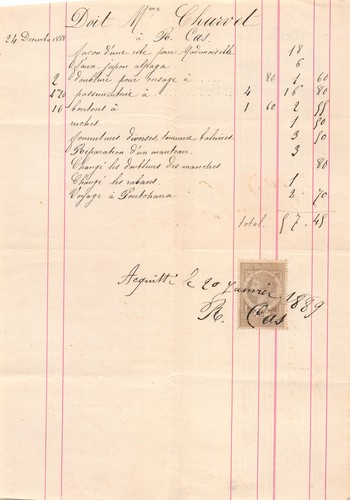 Doit Mme Charvet
à R. Cas.
24 Décembre 1888
façon d'une robe pour Mademoiselle 18
6
2 doublure pour corsage à 80 1 60
passementerie à 4 16 80
16 boutons à 1 60 2 55
ruches 1 50
fournitures diverses 3 50
Réparation d'un manteau 3
Changé les doublures des manches 80
Changé les rubans. 1
Voyage à 2 70
total. 57.45
Acquitté le 20 Janvier 1889
R. Cas